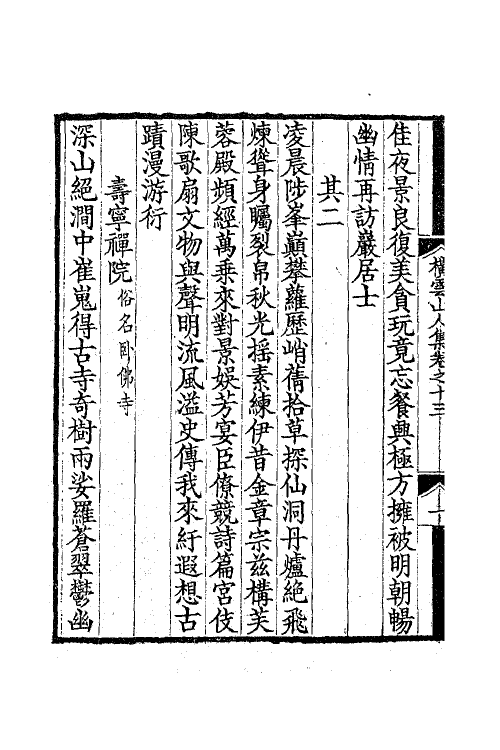 橫雲山人集卷之十三
佳夜景良復美貪玩竟忘餐興極方擁被明朝暢
幽情再訪巖居士
其二
凌晨陟峯巔攀蘿歷峭蒨拾草探仙洞丹爐絕飛
煉聳身矚裂帛秋光搖素練伊昔金章宗茲構芙
蓉殿頻經萬乘來對景娛芳宴臣僚競詩篇宮伎
陳歌扇文物與聲明流風溢史傳我來紆遐想古
蹟漫游衍
壽寧禪院俗名卧佛寺
深山絕澗中崔嵬得古寺奇樹兩娑羅蒼翠鬱幽